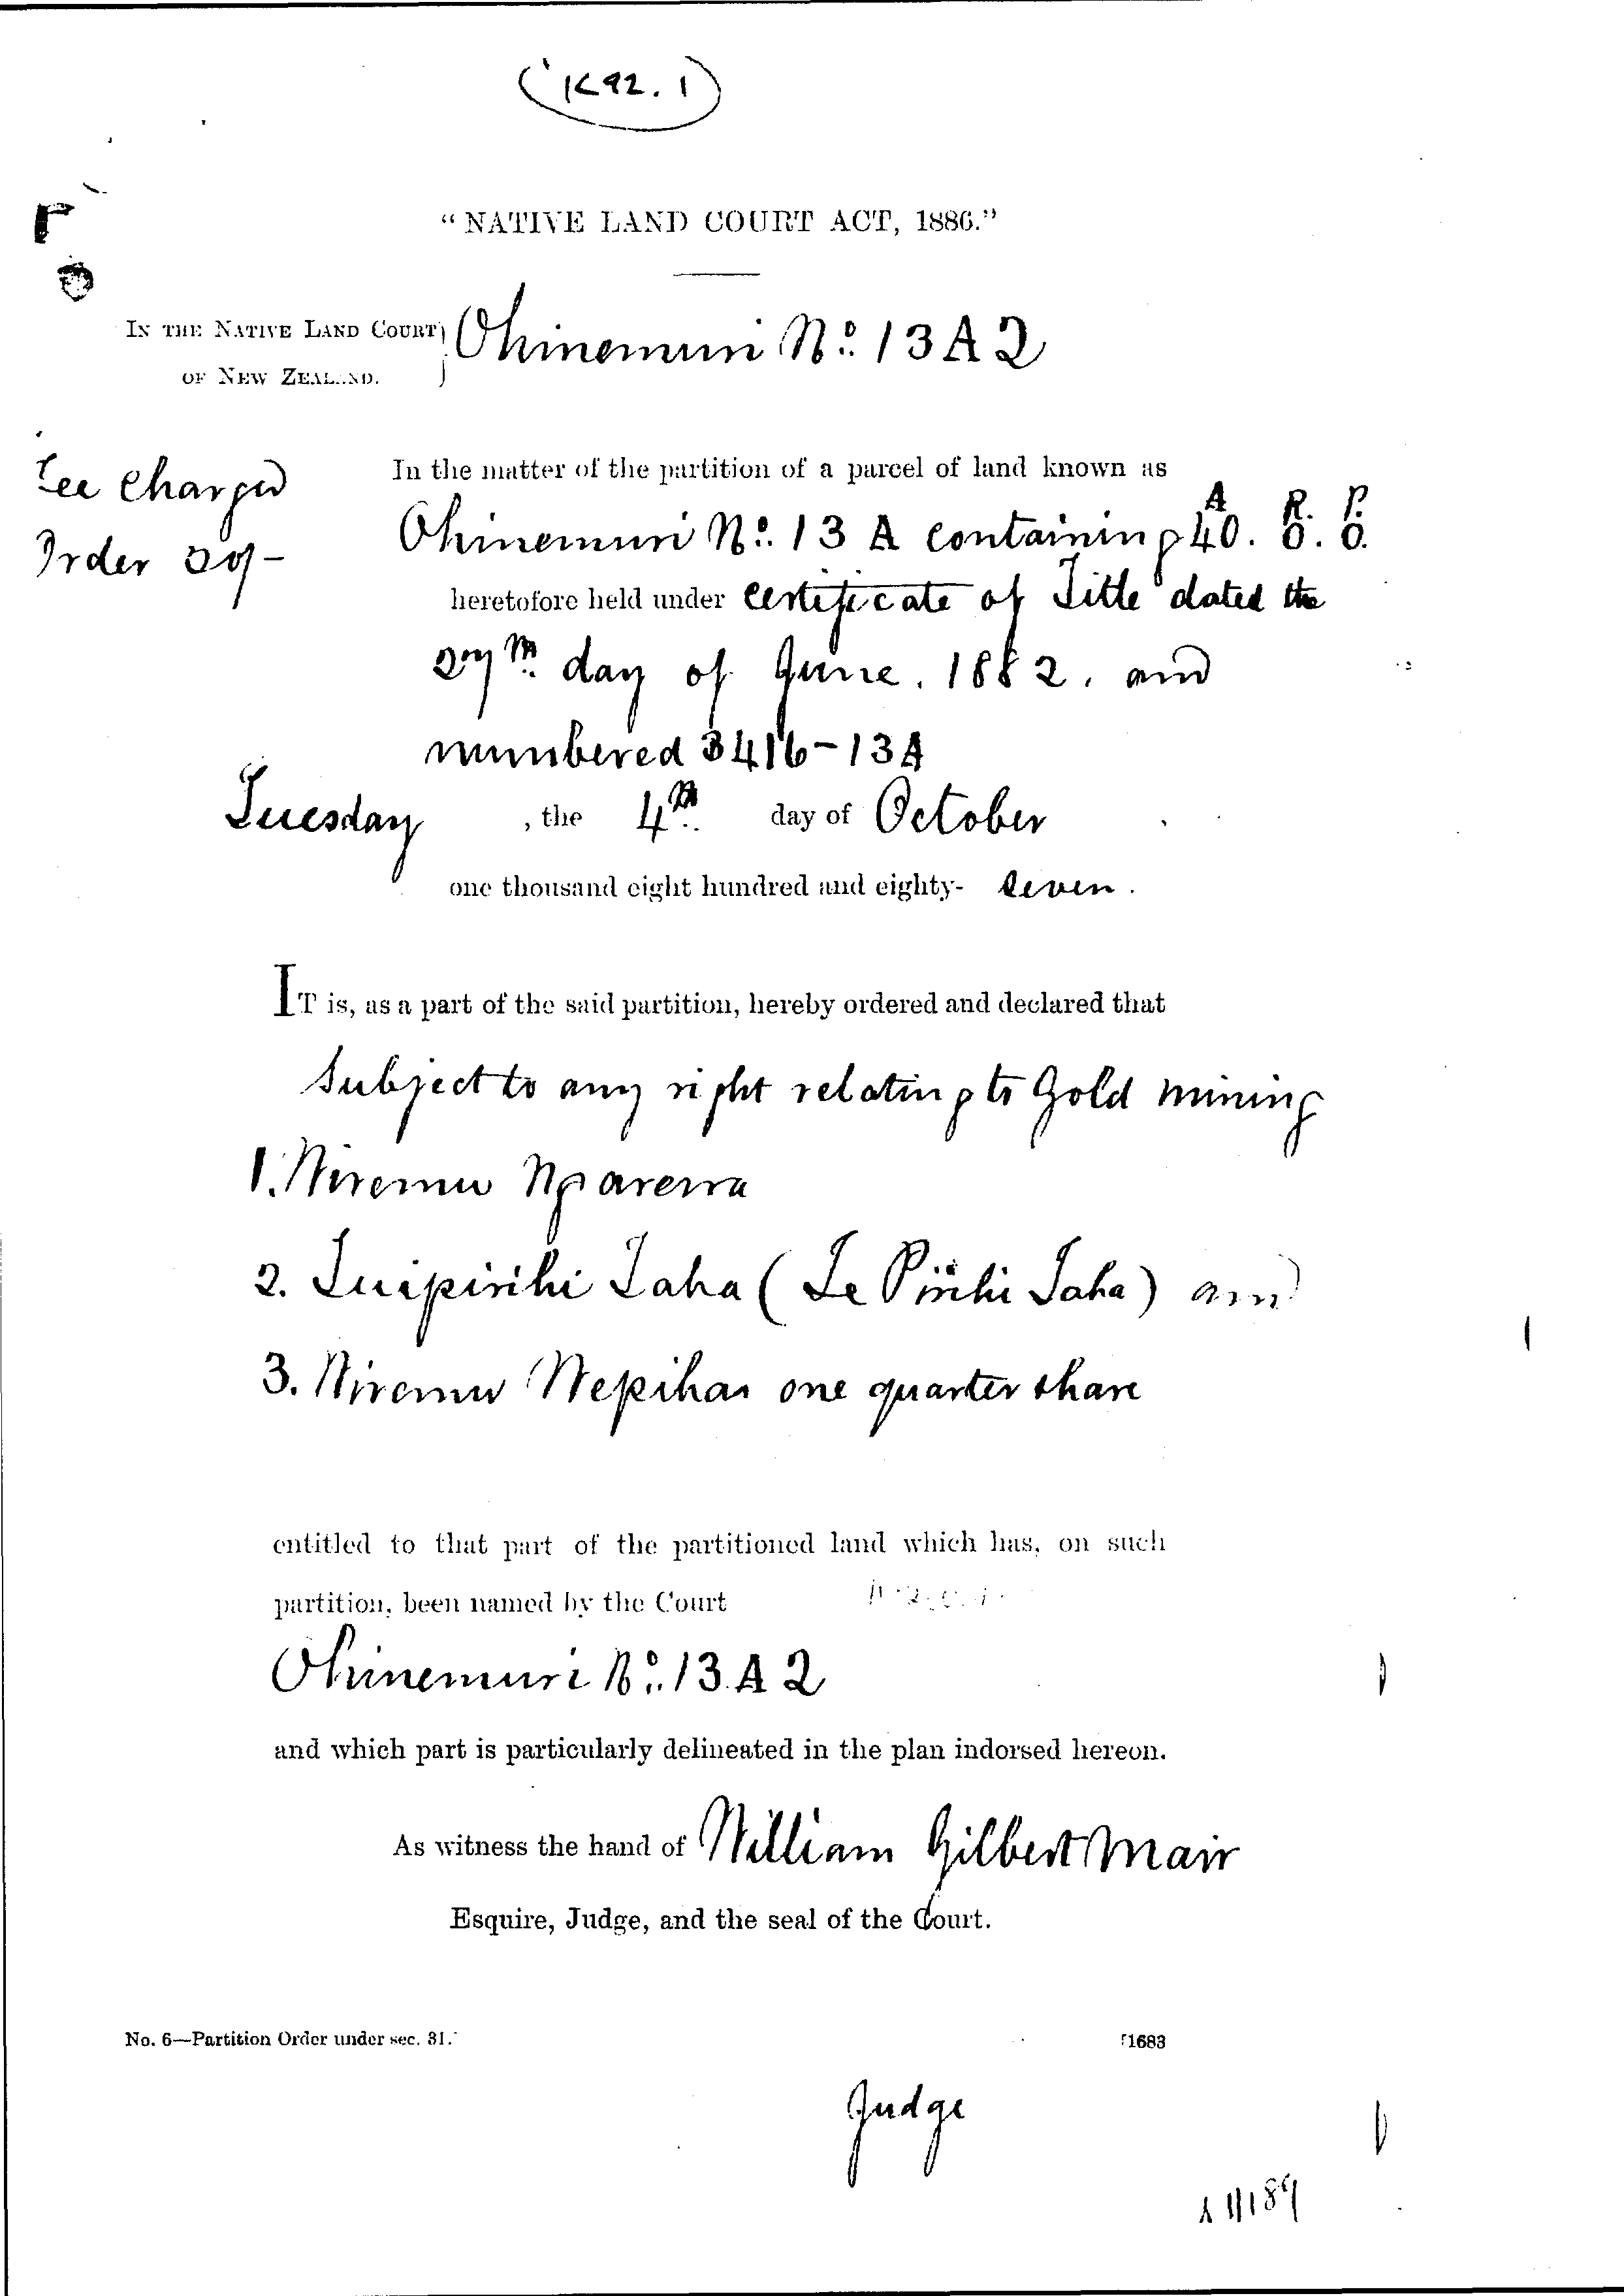 (K92.1)
"NATIVE LAND COURT ACT, 1886."
IN THE NATIVE LAND COURT
OF NEW ZEALAND.
Ohinemuri No. 13 A 2
Fee Charged
Order 20/-
In the matter of the partition of a parcel of land known as
Ohinemuri No. 13 A containing 40. 0. 0.
A R. P.
heretofore held under Certificate of Title dated the
27th day of June. 1882. and
numbered 3416-13A
Tuesday, the 4th day of October
one thousand eight hundred and eighty- seven.
IT is, as a part of the said partition, hereby ordered and declared that
Subject to any right relating to Gold mining
1. Wiremu Ngarema
2. Tuipirihi Taha (Te Pirihi Taha) and
3. Wiremu Wepiha one quarter share
entitled to that part of the partitioned land which has, on such
partition, been named by the Court
Ohinemuri No. 13 A 2
and which part is particularly delineated in the plan indorsed hereon.
As witness the hand of William Gilbert Mair
Esquire, Judge, and the seal of the Court.
No. 6—Partition Order under sec. 31.
1683
Judge